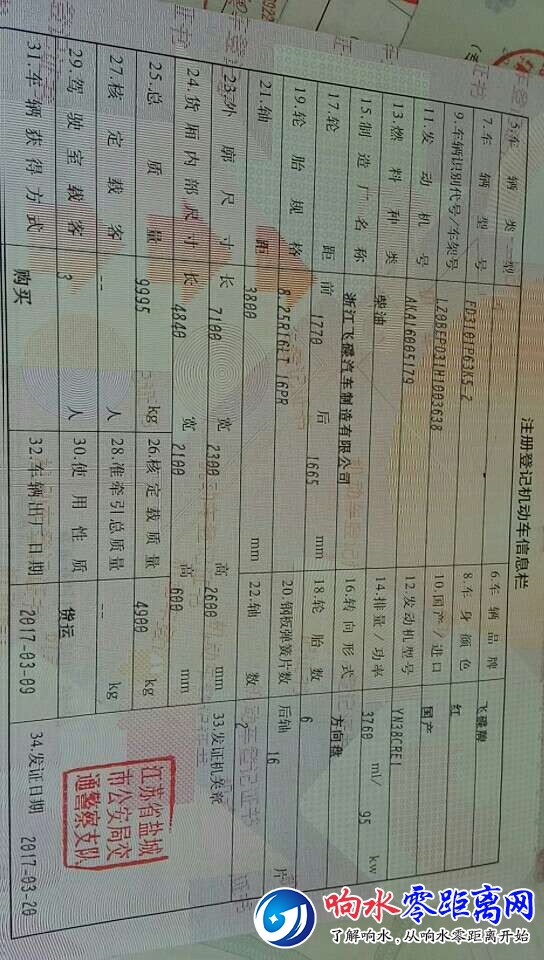 注册登记机动车信息栏
5.车辆类型 6.车辆品牌 飞碟牌
7.车辆型号 FD3101P63K5-2 8.车身颜色 红
9.车辆识别代号/车架号 LZ0BEPD31H1003638 10.国产/进口 国产
11.发动机号 AKA16005179 12.发动机型号 YN38CRE1
13.燃料种类 柴油 14.排量/功率 3760 ml/ 95 kw
15.制造厂名称 浙江飞碟汽车制造有限公司 16.转向形式 方向盘
17.轮距 前 1770 后 1665 mm 18.轮胎数 6
19.轮胎规格 8.25R16LT 16PR 20.钢板弹簧片数 后轴 16 片
21.轴距 3800 mm 22.轴数 2
23.外廓尺寸 长 7100 宽 2300 高 2600 mm 33.发证机关章
24.货厢内部尺寸 长 4840 宽 2100 高 600 mm
25.总质量 9995 kg 26.核定载质量 4900 kg
27.核定载客 -- 人 28.准牵引总质量 -- kg
29.驾驶室载客 3 人 30.使用性质 货运
31.车辆获得方式 购买 32.车辆出厂日期 2017-03-09 34.发证日期 2017-03-20
江苏省盐城
市公安局交
通警察支队
响水零距离网
了解响水，从响水零距离开始